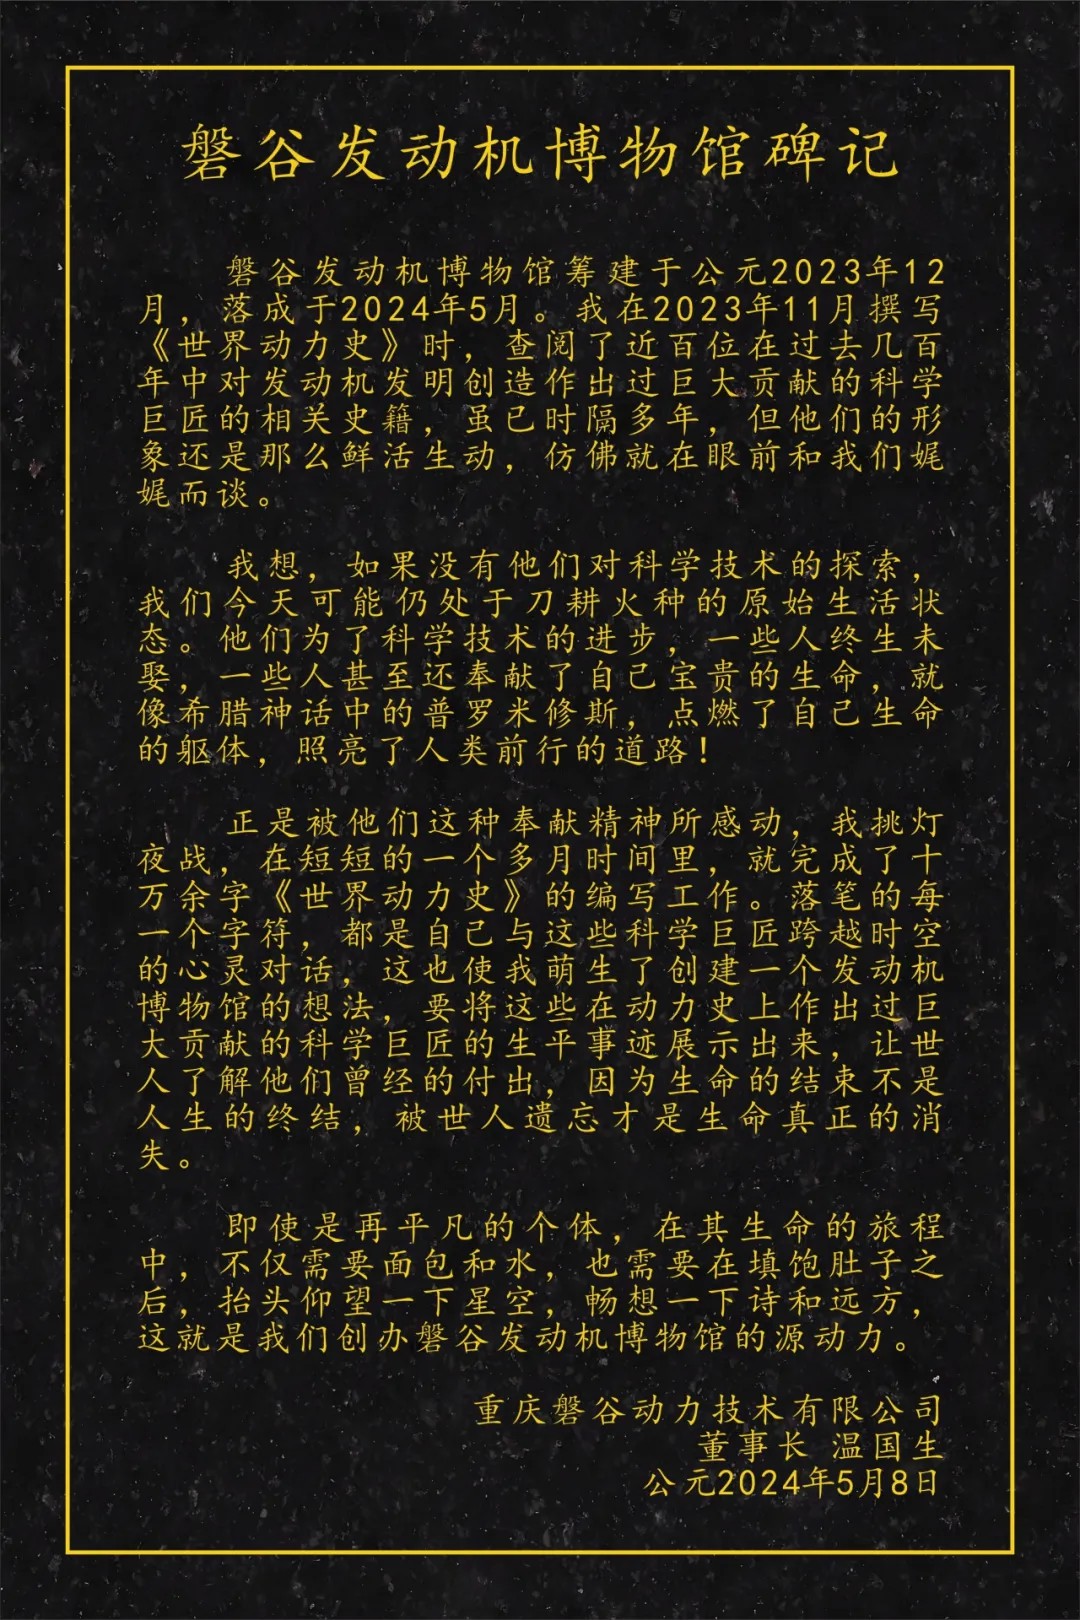 磐谷发动机博物馆碑记
磐谷发动机博物馆筹建于公元2023年12
月，落成于2024年5月。我在2023年11月撰写
《世界动力史》时，查阅了近百位在过去几百
年中对发动机发明创造作出过巨大贡献的科学
巨匠的相关史籍，虽已时隔多年，但他们的形
象还是那么鲜活生动，仿佛就在眼前和我们娓
娓而谈。
我想，如果没有他们对科学技术的探索，
我们今天可能仍处于刀耕火种的原始生活状
态。他们为了科学技术的进步，一些人终生未
娶，一些人甚至还奉献了自己宝贵的生命，就
像希腊神话中的普罗米修斯，点燃了自己生命
的躯体，照亮了人类前行的道路！
正是被他们这种奉献精神所感动，我挑灯
夜战，在短短的一个多月时间里，就完成了十
万余字《世界动力史》的编写工作。落笔的每
一个字符，都是自己与这些科学巨匠跨越时空
的心灵对话，这也使我萌生了创建一个发动机
博物馆的想法，要将这些在动力史上作出过巨
大贡献的科学巨匠的生平事迹展示出来，让世
人了解他们曾经的付出，因为生命的结束不是
人生的终结，被世人遗忘才是生命真正的消
失。
即使是再平凡的个体，在其生命的旅程
中，不仅需要面包和水，也需要在填饱肚子之
后，抬头仰望一下星空，畅想一下诗和远方，
这就是我们创办磐谷发动机博物馆的源动力。
重庆磐谷动力技术有限公司
董事长 温国生
公元2024年5月8日